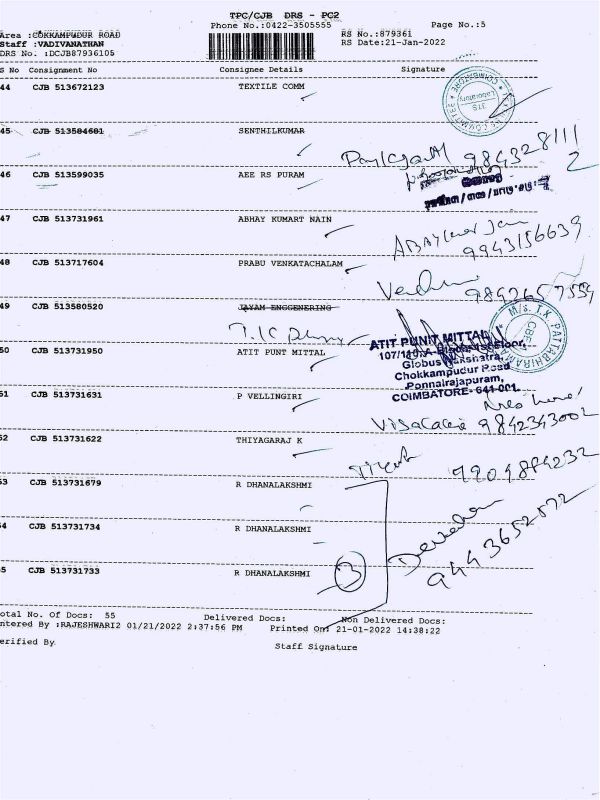 TPC/CJB DRS - PC2
Phone No.:0422-3505555
Page No.:5
Area :COKKAMPUDUR ROAD
RS No.:879361
Staff :VADIVANATHAN
RS Date:21-Jan-2022
DRS No. :DCJB87936105
S No Consignment No Consignee Details Signature
44 CJB 513672123 TEXTILE COMM
45 CJB 513584681 SENTHILKUMAR
984328111
2
46 CJB 513599035 AEE RS PURAM
47 CJB 513731961 ABHAY KUMART NAIN
9943156639
48 CJB 513717604 PRABU VENKATACHALAM
49 CJB 513580520 JAYAM ENGGENERING
M/s. T.K. PATTABHIRAMA
ATIT PUNIT MITTAL
50 CJB 513731950 ATIT PUNT MITTAL
Chokkampudur Road
Ponnairajapuram,
COIMBATORE- 641 001.
51 CJB 513731631 P VELLINGIRI
9842343002
52 CJB 513731622 THIYAGARAJ K
53 CJB 513731679 R DHANALAKSHMI
54 CJB 513731734 R DHANALAKSHMI
55 CJB 513731733 R DHANALAKSHMI
3
9443652572
otal No. Of Docs: 55 Delivered Docs: Non Delivered Docs:
ntered By :RAJESHWARI2 01/21/2022 2:37:56 PM Printed On: 21-01-2022 14:38:22
erified By Staff Signature